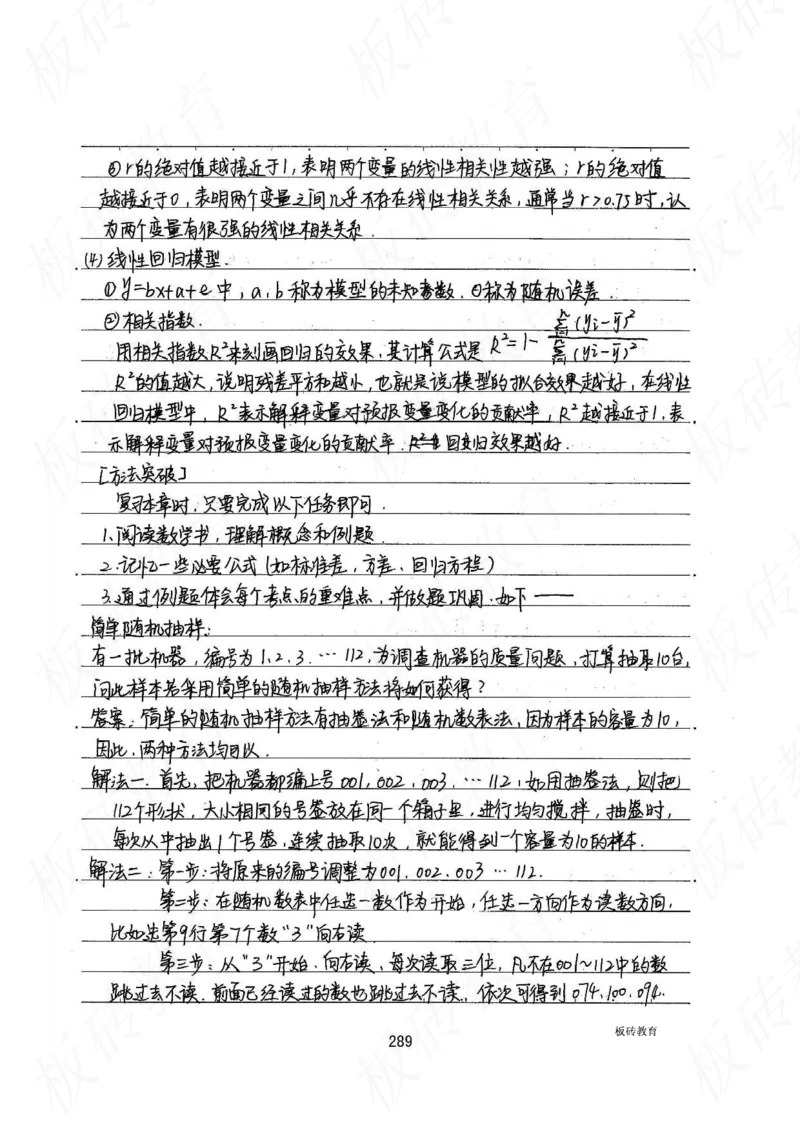 ②r的绝对值越接近于1,表明两个变量的线性相关性越强;r的绝对值
越接近于0,表明两个变量之间几乎不存在线性相关关系,通常当r>0.75时,认
为两个变量有很强的线性相关关系.
(4)线性回归模型.
①y=bx+a+e中,a,b称为模型的未知参数.e称为随机误差.
②相关指数.
用相关指数R²来刻画回归的效果,其计算公式是 R²=1-Σ(yi-ŷ)²/Σ(yi-ȳ)²
R²的值越大,说明残差平方和越小,也就是说模型的拟合效果越好,在线性
回归模型中,R²表示解释变量对预报变量变化的贡献率,R²越接近于1.表
示解释变量对预报变量变化的贡献率.回归效果越好.
[方法突破]
复习本章时.只要完成以下任务即可.
1.阅读数学书,理解概念和例题.
2.记忆一些必要公式(如标准差,方差,回归方程)
3.通过例题体会每个考点的重难点,并做题巩固.如下——
简单随机抽样:
有一批机器,编号为1、2、3.…112,为调查机器的质量问题,打算抽取10台,
问此样本若采用简单的随机抽样方法将如何获得?
答案:简单的随机抽样方法有抽签法和随机数表法,因为样本的容量为10,
因此.两种方法均可以.
解法一.首先,把机器都编上号001,002,003.…112,如用抽签法,则把
112个形状,大小相同的号签放在同一个箱子里,进行均匀搅拌,抽签时,
每次从中抽出1个号签,连续抽取10次,就能得到一个容量为10的样本.
解法二:第一步:将原来的编号调整为001.002.003…112.
第二步:在随机数表中任选一数作为开始,任选一方向作为读数方向.
比如选第9行第7个数"3"向右读
第三步:从"3"开始.向右读,每次读取三位,凡不在001~112中的数
跳过去不读.前面已经读过的数也跳过去不读.,依次可得到074.100.094.
289
板砖教育